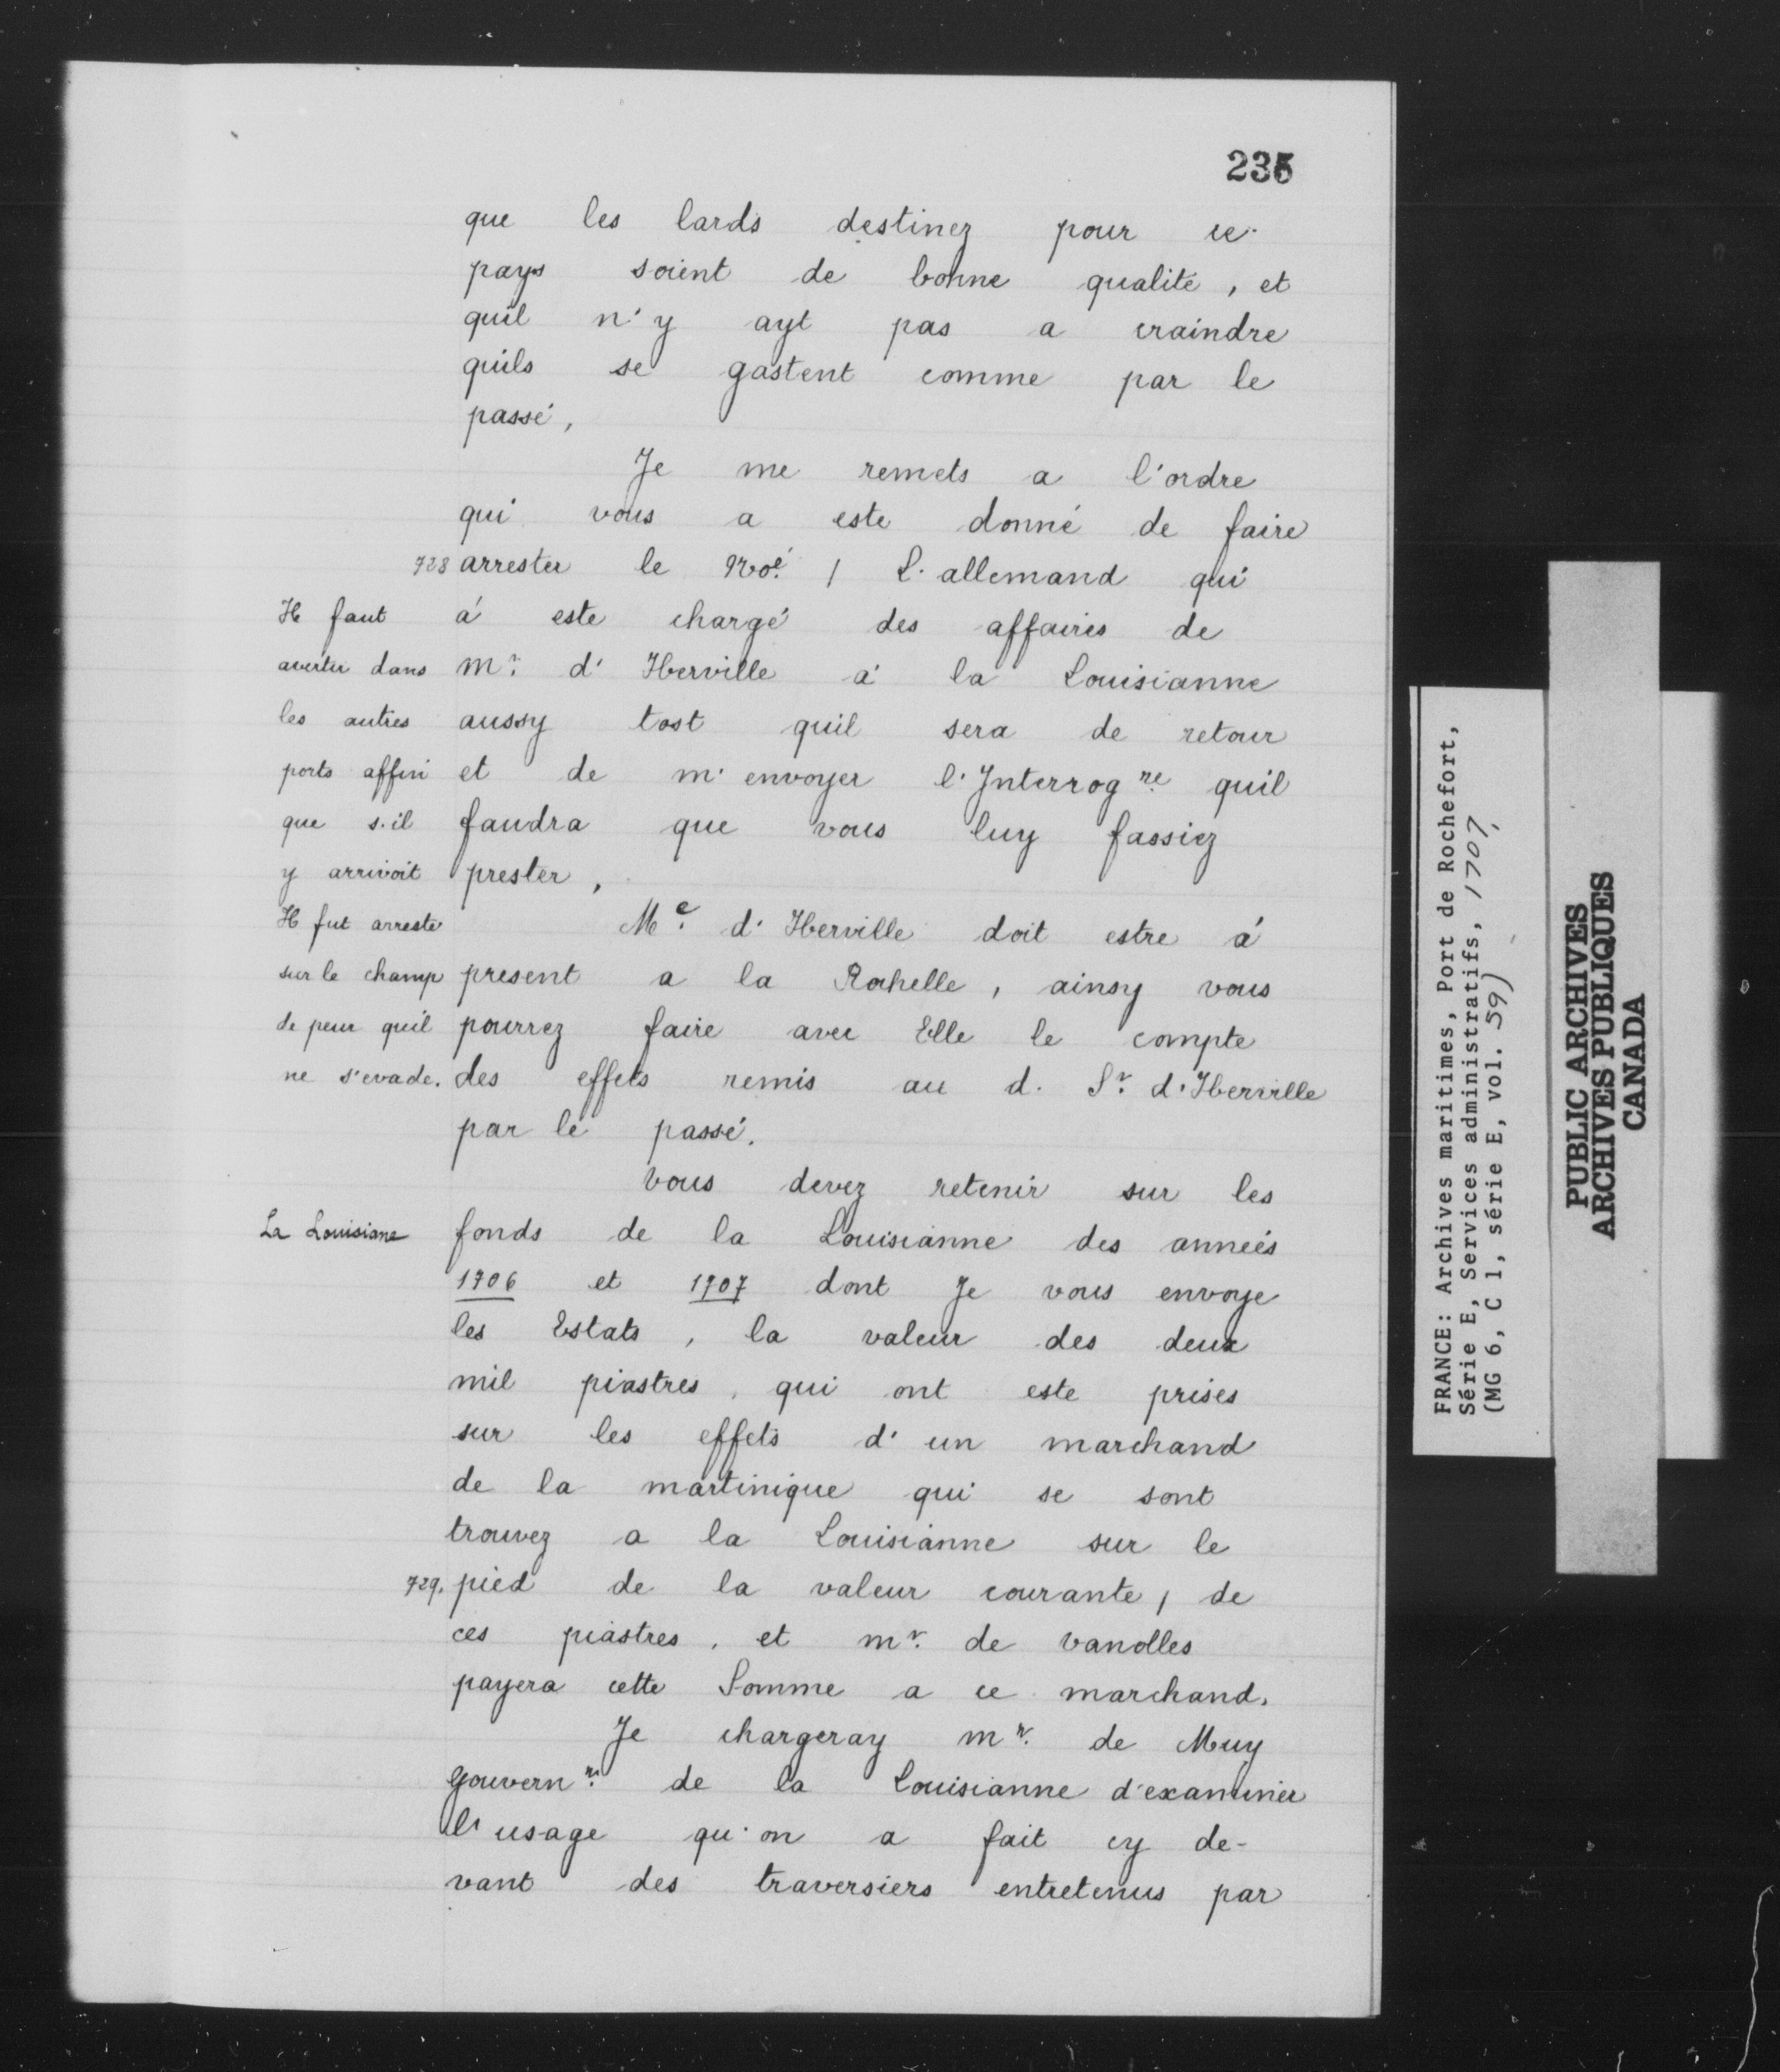 235
que les lards destinez pour ce
pays soient de bonne qualité, et
quil n'y ayt pas a craindre
quils se gastent comme par le
passé,
Je me remets a l'ordre
qui vous a este donné de faire
728 arrester le / L'allemand qui
á este chargé des affaires de
mr. d'Iberville á la Louisianne
aussy tost quil sera de retour
et de m'envoyer l'Interrogre. quil
faudra que vous luy fassiez
prester,
Il faut
avertir dans
les autres
ports affin
que s'il
y arrivoit
Il fut arreste
sur le champ
de peur quil
ne s'evade.
Me. d'Iberville doit estre á
present a la Rochelle, ainsy vous
pourrez faire avec Elle le compte
des effets remis au d. Sr. d'Iberville
par le passé.
Vous devez retenir sur les
La Louisiane
fonds de la Louisianne des années
1706 et 1707 dont Je vous envoye
les Estats, la valeur des deux
mil piastres, qui ont este prises
sur les effets d'un marchand
de la martinique qui se sont
trouvez a la Louisianne sur le
729. pied de la valeur courante / de
ces piastres, et mr. de vanolles
payera cette Somme a ce marchand.
Je chargeray mr. de Muy
gouvernr. de la Louisianne d'examiner
l'usage qu'on a fait cy de-
vant des traversiers entretenus par
FRANCE: Archives maritimes, Port de Rochefort,
Série E, Services administratifs, 1707,
(MG 6, C 1, série E, vol. 59)
PUBLIC ARCHIVES
ARCHIVES PUBLIQUES
CANADA